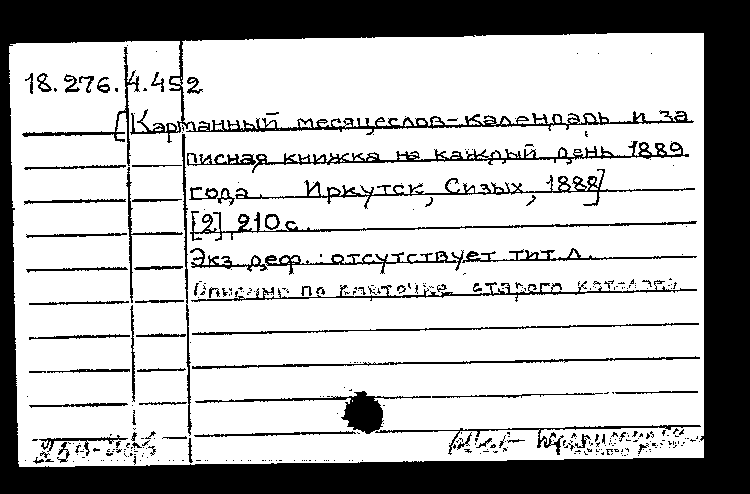 18.276.4.452
[Карманный месяцеслов-календарь и за
писная книжка на каждый день 1889
года. Иркутск, Сизых, 1888]
[2], 210 с.
Экз. деф.: отсутствует тит. л.
Описано по карточке старого каталога